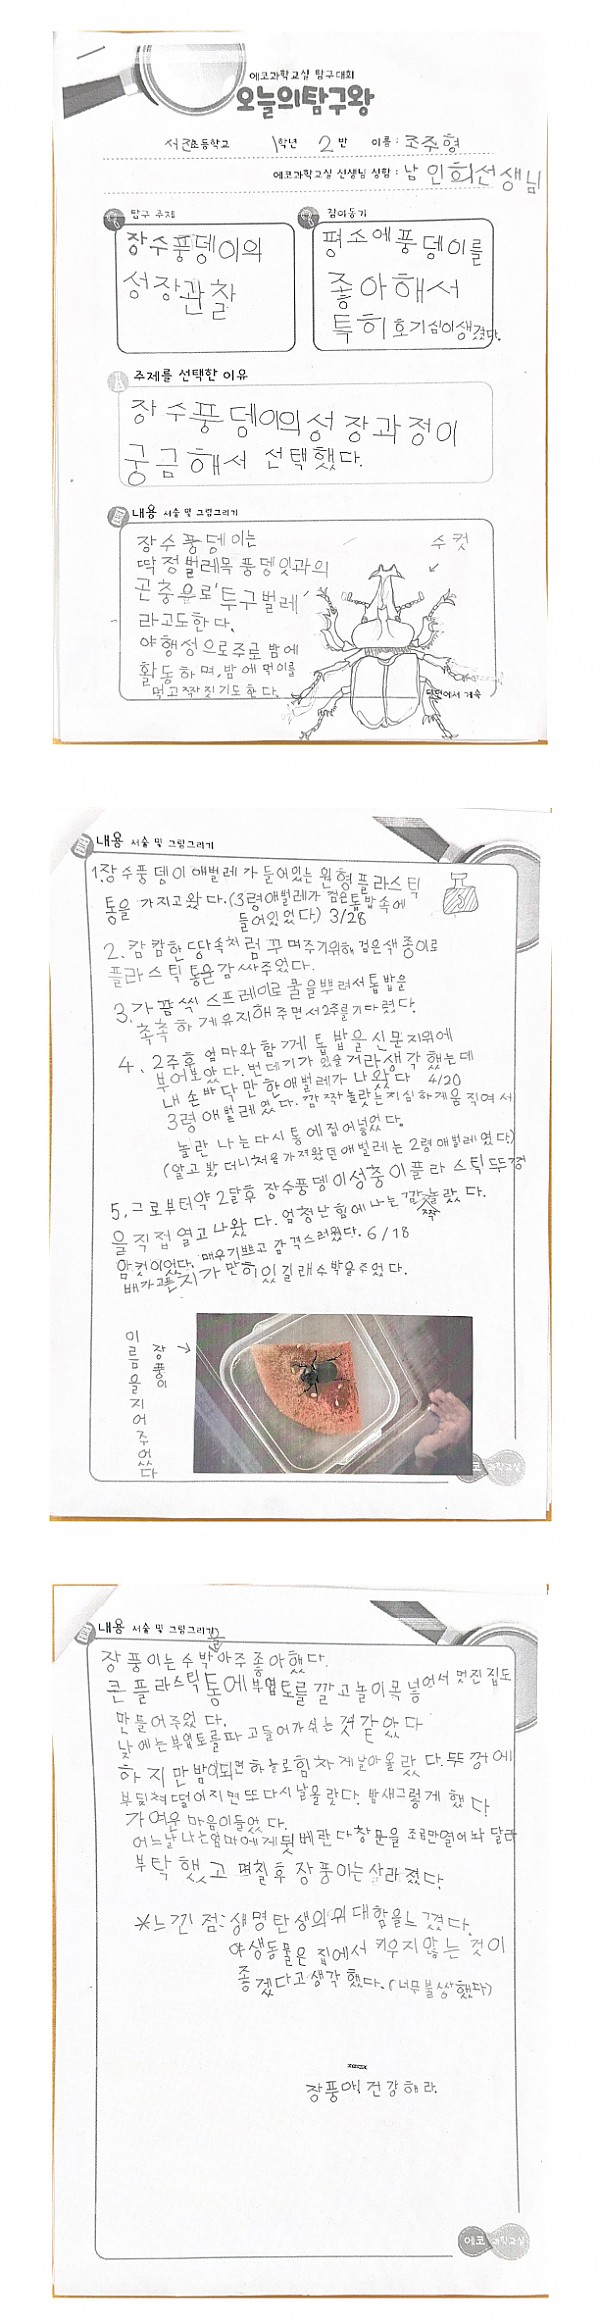 에코과학교실 탐구대회
오늘의탐구왕
초등학교 1학년 2반 이름: 조주형
에코과학교실 선생님 성함: 남인희선생님
탐구 주제
장수풍뎅이의
성장관찰
참여동기
평소에풍뎅이를
좋아해서
특히 호기심이생겼다.
주제를 선택한 이유
장수풍뎅이의성장과정이
궁금해서 선택했다.
내용 서술 및 그림그리기
장수풍뎅이는
딱정벌레목 풍뎅잇과의
곤충으로'투구벌레'
라고도한다.
야행성으로주로 밤에
활동하며,밤에 먹이를
먹고 짝짓기도 한다.
수컷
뒷면에서 계속
내용 서술 및 그림그리기
1.장수풍뎅이애벌레가들어있는 원형플라스틱
통을 가지고왔다.(3령애벌레가 검은톱밥속에
들어있었다.) 3/28
2. 캄캄한 땅속처럼 꾸며주기위해 검은색종이로
플라스틱통을감싸주었다.
3.가끔씩 스프레이로 물을뿌려서톱밥을
촉촉하게유지해주면서2주를기다렸다.
4. 2주후엄마와함께 톱밥을신문지위에
부어보았다. 번데기가있을거라생각했는데
내손바닥만한애벌레가나왔다 4/20
3령애벌레였다. 깜짝놀랐는지심하게움직여서
놀란 나는다시통에집어넣었다.
(알고 봤더니처음가져왔던애벌레는2령애벌레였다)
5. 그로부터약2달후 장수풍뎅이성충이플라스틱뚜껑
을직접열고나왔다. 엄청난힘에나는깜짝놀랐다.
암컷이었다. 매우기쁘고 감격스러웠다. 6/18
배가고픈지가만히있길래수박을주었다.
장풍이
이름을지어주었다
에코 과학교실
내용 서술 및 그림그리기
장풍이는수박을아주좋아했다.
큰플라스틱통에부엽토를깔고놀이목넣어서멋진집도
만들어주었다.
낮에는부엽토를파고들어가쉬는것같았다
하지만밤이되면하늘로힘차게날아올랐다. 뚜껑에
부딪쳐떨어지면또다시날올랐다. 밤새그렇게했다
가여운마음이들었다.
어느날나는엄마에게뒷베란다창문을조금만열어놔달라
부탁했고 며칠후장풍이는사라졌다.
*느낀점:생명탄생의위대함을느꼈다.
야생동물은집에서키우지않는것이
좋겠다고생각했다.(너무불쌍했다)
장풍아! 건강해라.
에코 과학교실